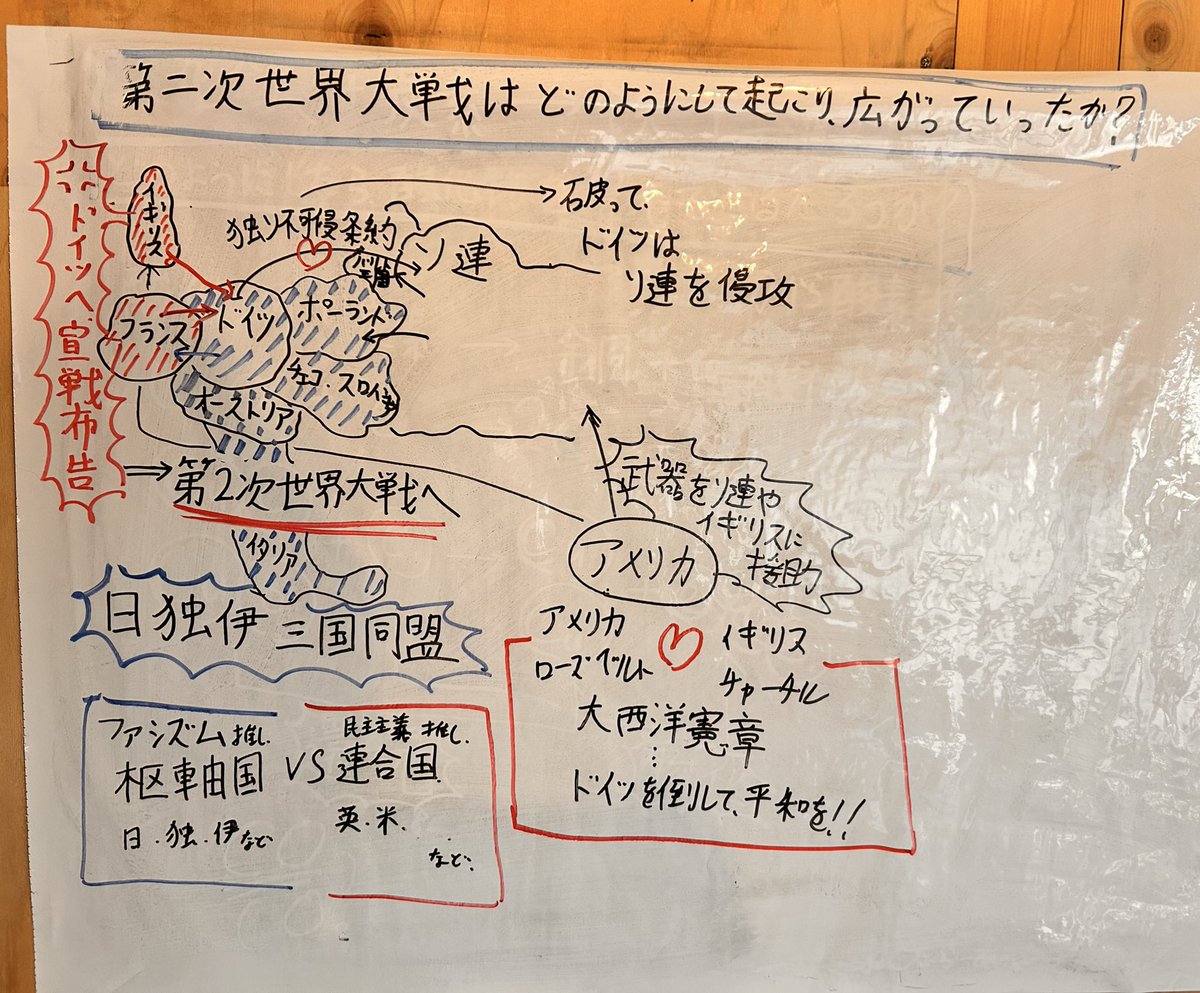 第二次世界大戦はどのようにして起こり、広がっていったか?
ドイツへ宣戦布告
イギリス
独ソ不可侵条約
ソ連
破って、
ドイツは
ソ連を侵攻
フランス
ドイツ
ポーランド
チェコ・スロバキア
オーストリア
第2次世界大戦へ
イタリア
日独伊 三国同盟
武器をソ連や
イギリスに
援助
アメリカ
アメリカ
ローズベルト
イギリス
チャーチル
大西洋憲章
ドイツを倒して、平和を!!
ファシズム推し
枢軸国
日・独・伊など
VS
民主主義推し
連合国
英・米・
など